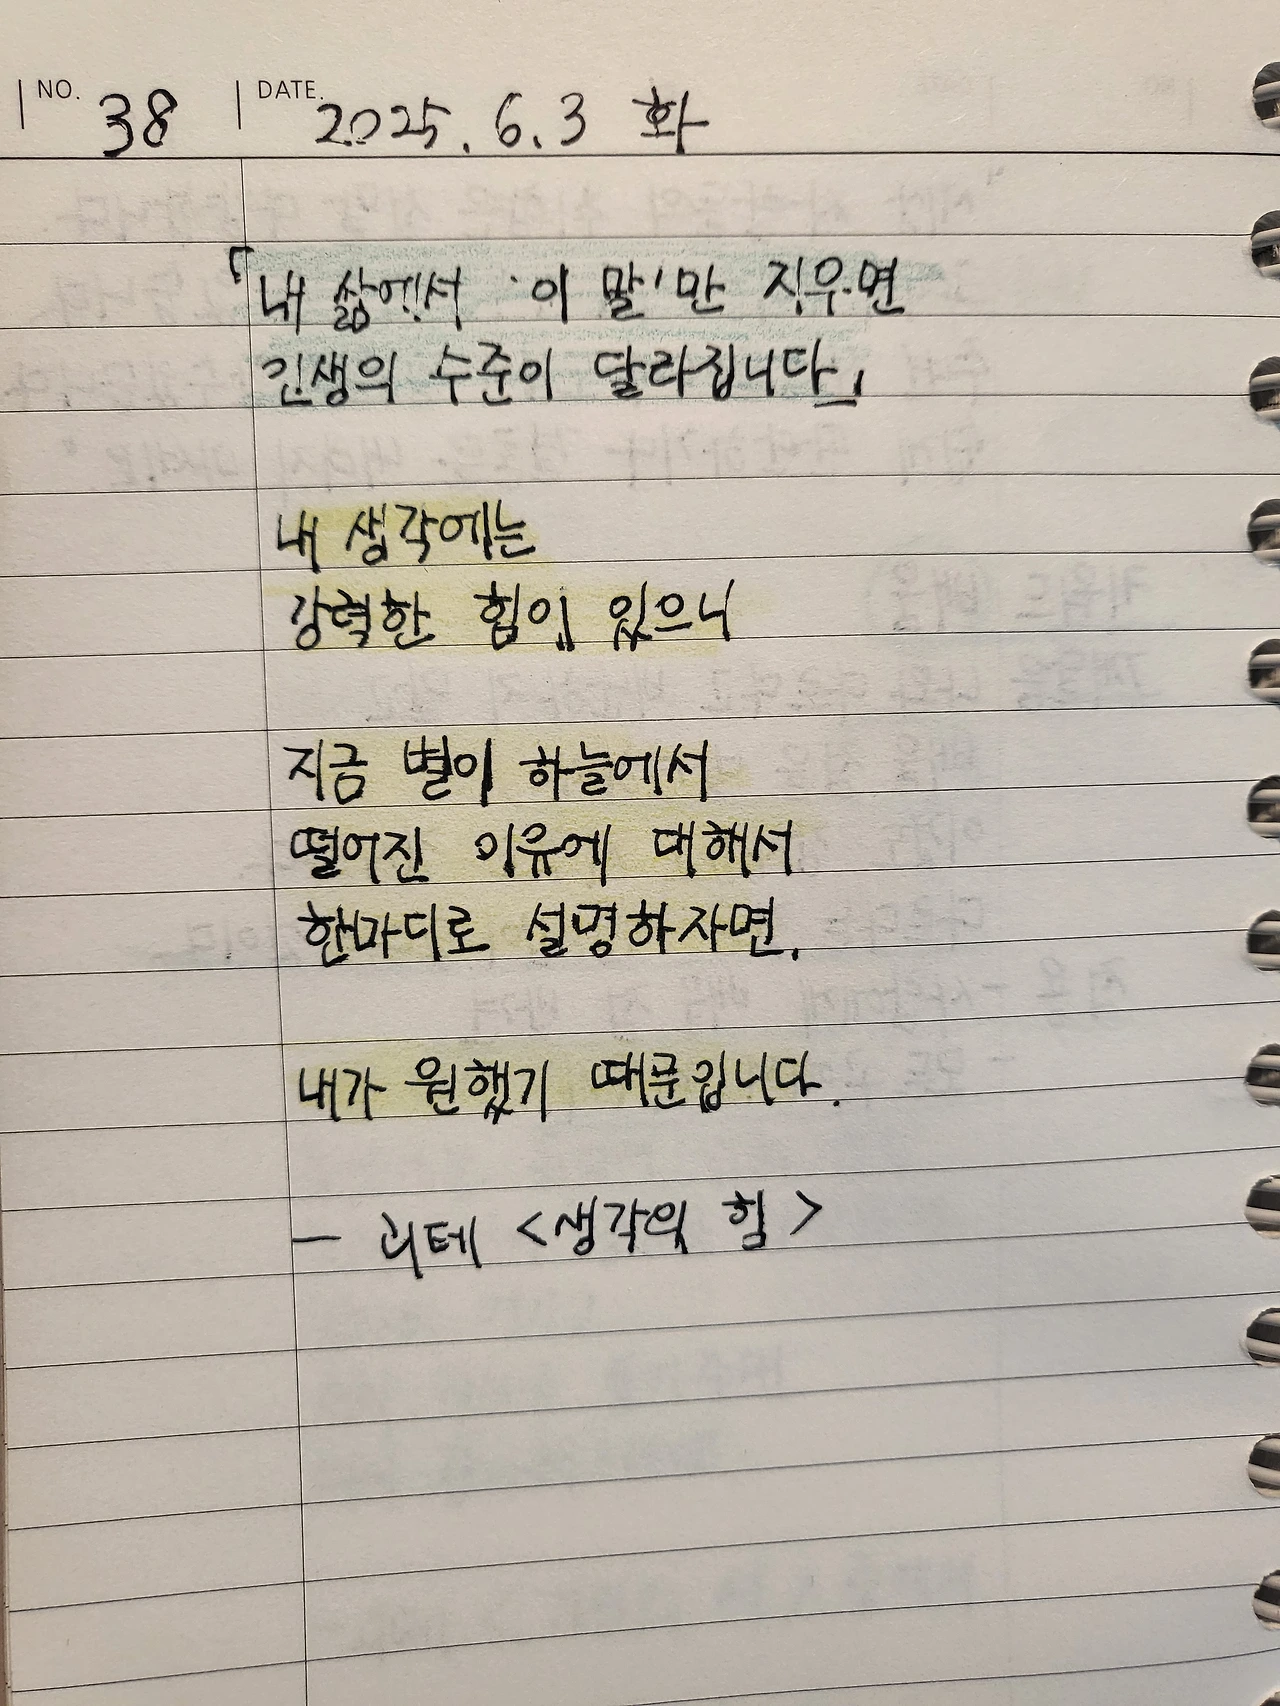 NO. 38 DATE. 2025. 6. 3 화
「내 삶에서 '이 말'만 지우면
인생의 수준이 달라집니다」
내 생각에는
강력한 힘이 있으니
지금 별이 하늘에서
떨어진 이유에 대해서
한마디로 설명하자면,
내가 원했기 때문입니다.
- 괴테 <생각의 힘>